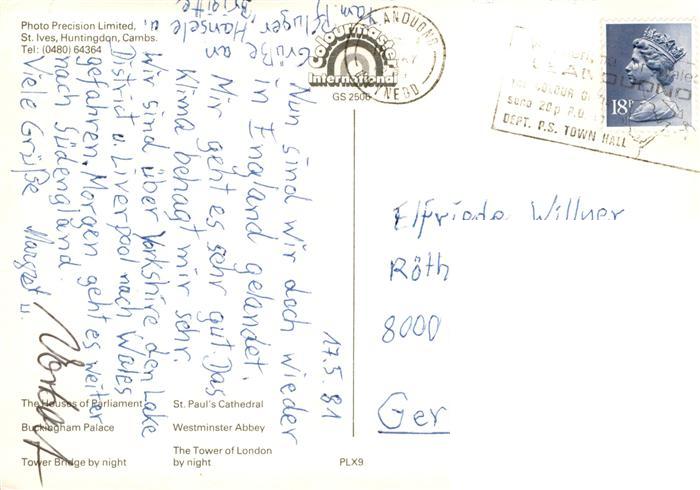 Photo Precision Limited,
St. Ives, Huntingdon, Cambs.
Tel: (0480) 64364
Colourmaster
International
GS 2506
LLANDUDNO
GWYNEDD
LLANDUDNO
THE COLOUR
SEND 20p P.O.
DEPT. P.S. TOWN HALL
18P
17.5.81
Nun sind wir doch wieder
in England gelandet.
Mir geht es sehr gut. Das
Klima behagt mir sehr.
Wir sind über Yorkshire den Lake
District u. Liverpool nach Wales
gefahren. Morgen geht es weiter
nach Südengland.
Viele Grüße Margret u.
Norbert
Grüße an
Fam. Pfluger, Hansele u.
Brigitte
Elfriede Willner
Röth
8000
Ger
The Houses of Parliament
Buckingham Palace
Tower Bridge by night
St. Paul's Cathedral
Westminster Abbey
The Tower of London
by night
PLX9